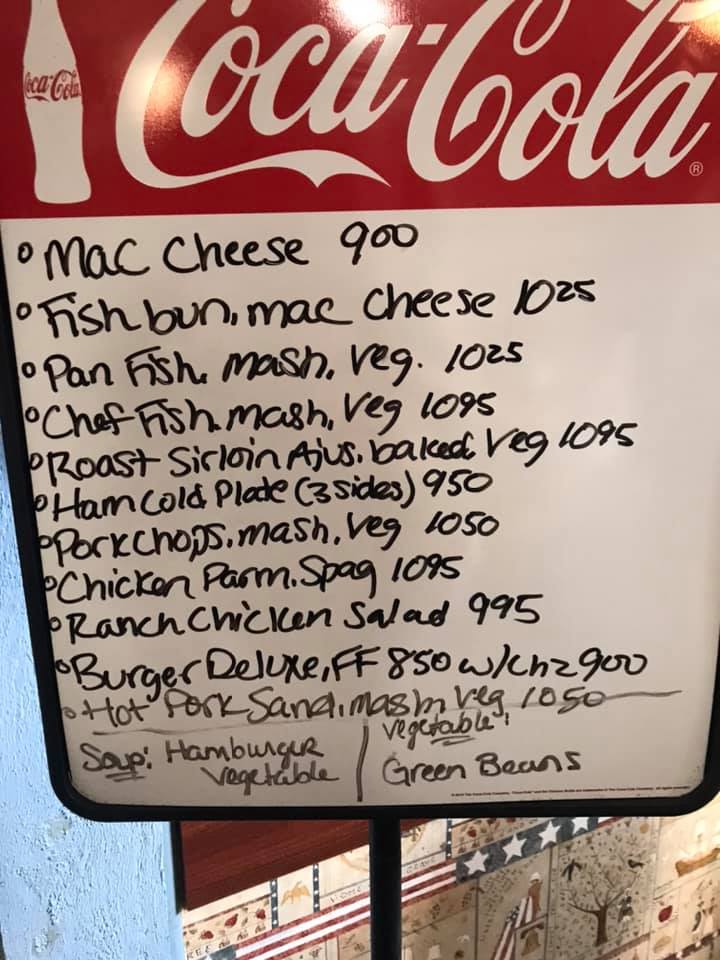 Coca-Cola
Coca-Cola®
° Mac Cheese 900
° Fish bun, mac cheese 1025
° Pan Fish, mash, veg. 1025
° Chef Fish. mash, veg 1095
° Roast Sirloin Ajus. baked, veg 1095
° Ham Cold Plate (3 sides) 950
° Pork Chops, mash, veg 1050
° Chicken Parm. Spag 1095
° Ranch Chicken Salad 995
° Burger Deluxe, FF 850 w/chz 900
° Hot Pork Sand, mash veg 1050
Soup: Hamburger
Vegetable
Vegetable:
Green Beans